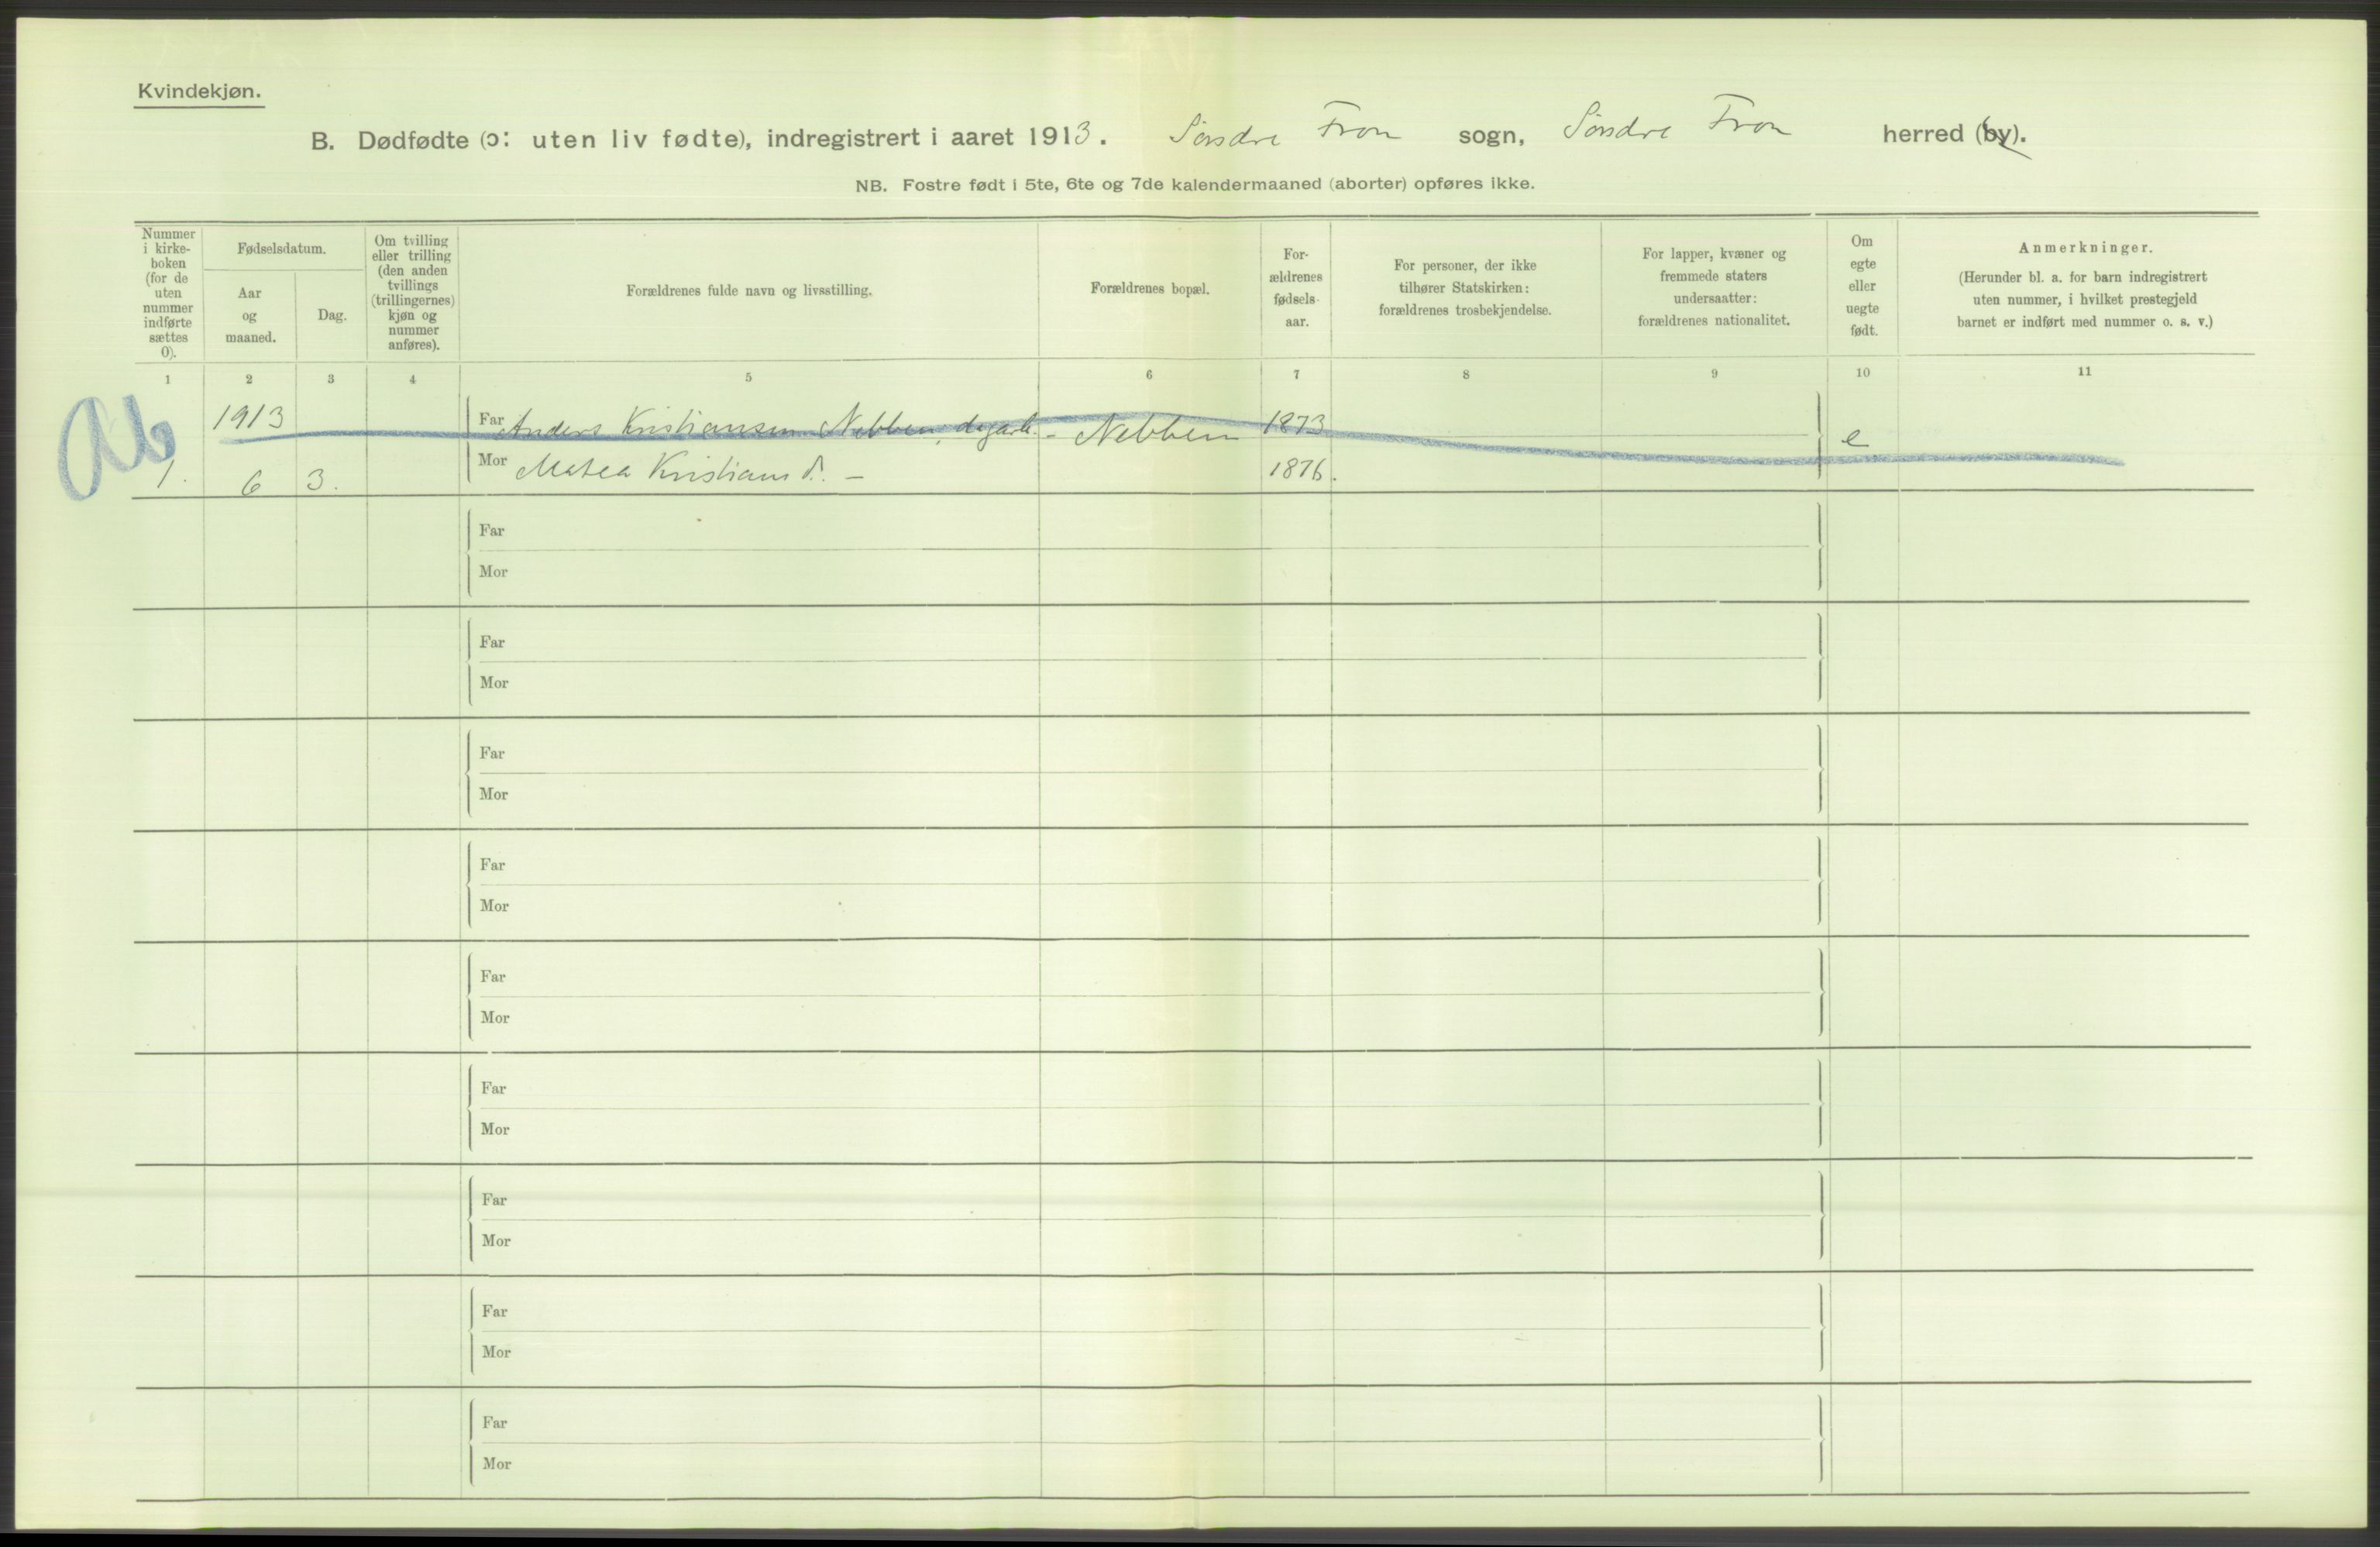 Kvindekjøn.
B. Dødfødte (ɔ: uten liv fødte), indregistrert i aaret 1913. Søndre Fron sogn, Søndre Fron herred (by).
NB. Fostre født i 5te, 6te og 7de kalendermaaned (aborter) opføres ikke.
Nummer
i kirke-
boken
(for de
uten
nummer
indførte
sættes
0).
Fødselsdatum.
Aar
og
maaned.
Dag.
Om tvilling
eller trilling
(den anden
tvillings
(trillingernes)
kjøn og
nummer
anføres).
Forældrenes fulde navn og livsstilling.
Forældrenes bopæl.
For-
ældrenes
fødsels-
aar.
For personer, der ikke
tilhører Statskirken:
forældrenes trosbekjendelse.
For lapper, kvæner og
fremmede staters
undersaatter:
forældrenes nationalitet.
Om
egte
eller
uegte
født.
Anmerkninger.
(Herunder bl. a. for barn indregistrert
uten nummer, i hvilket prestegjeld
barnet er indført med nummer o. s. v.)
1 2 3 4 5 6 7 8 9 10 11
Ab
1913 Far Anders Kristiansen Nebben, dagarb. - Nebben 1873 e
1. 6 3. Mor Matea Kristians d. - 1876.
Far
Mor
Far
Mor
Far
Mor
Far
Mor
Far
Mor
Far
Mor
Far
Mor
Far
Mor
Far
Mor